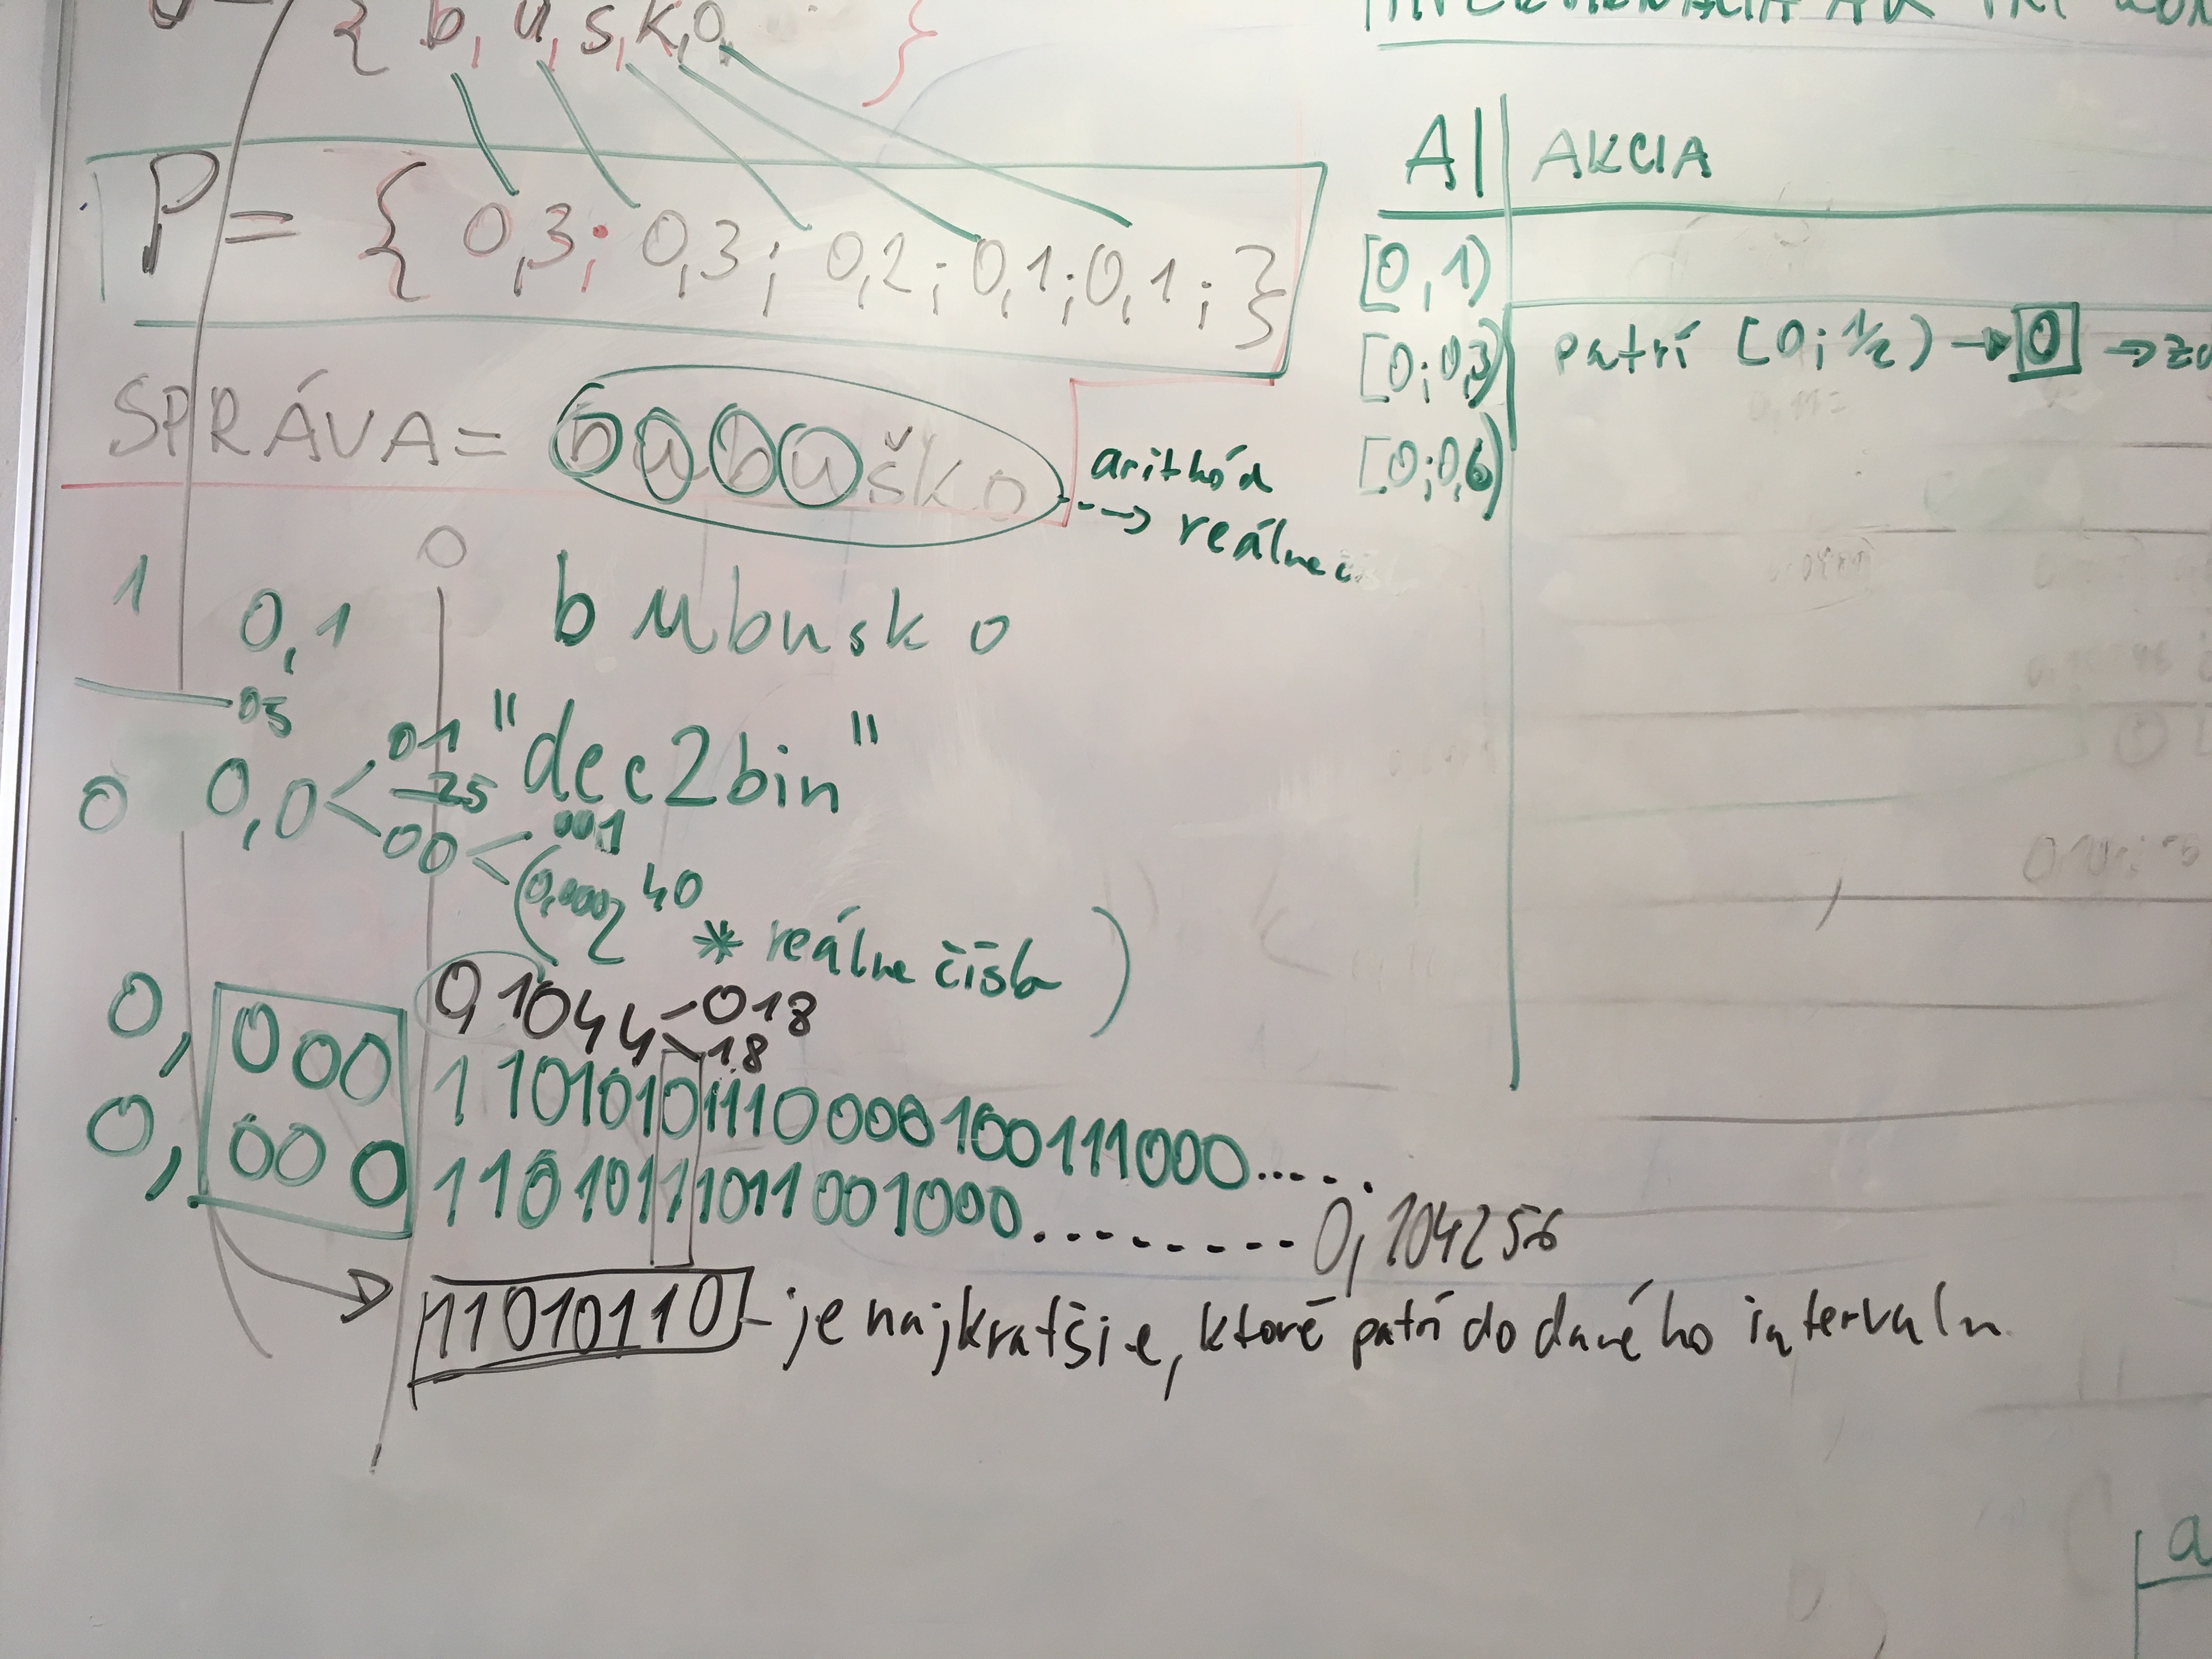 { b, u, s, k, o, }
P = { 0,3; 0,3; 0,2; 0,1; 0,1; }
SPRÁVA = bubuško
aritkód
--> reálne
1 0,1 0
bubusko
05
0 0,0 < 01
25
00 < 001
"dec2bin"
(0,000
2^40 * reálne čísla )
0,1044 018
18
0, 000 1101010111000010011100​0.....
0, 000 1101011101100100​0........ 0,104256
11010110 - je najkratšie, ktoré patrí do daného intervalu
A| AKCIA
[0, 1)
[0; 0,3) patrí [0; 1/2) → 0 →
[0; 0,6)
a